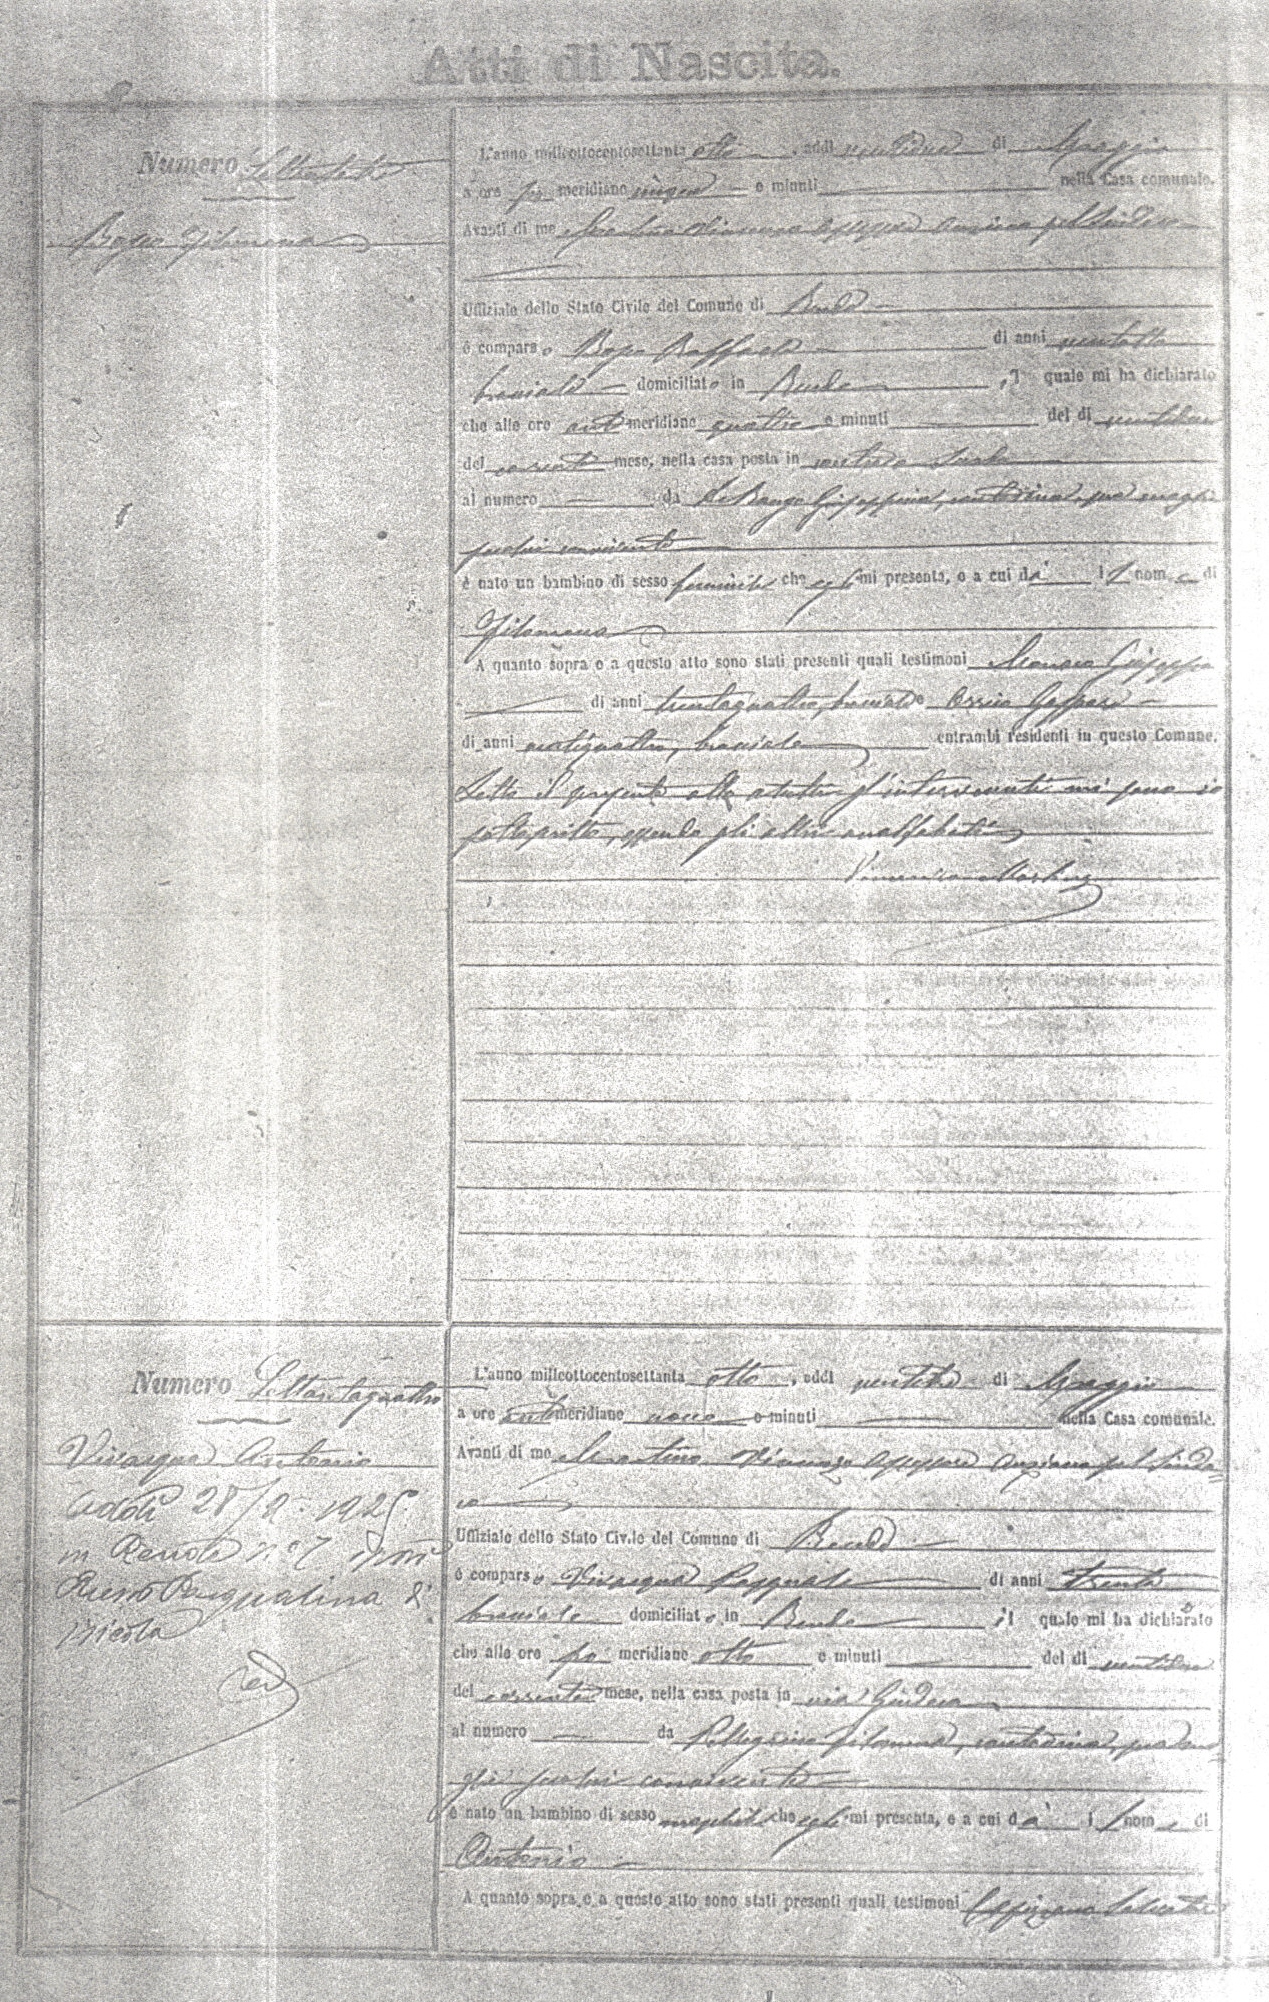 Atti di Nascita.
Numero Settantatre
Filomena
L'anno millottocentosettanta otto, addì ventidue di Maggio
a ore po meridiane cinque e minuti nella Casa comunale.
Avanti di me Martino Vincenzo Assessore Anziano pel Sindaco
Uffiziale dello Stato Civile del Comune di Rende
è comparso Raffaele di anni ventotto
bracciale domiciliato in Rende, il quale mi ha dichiarato
che alle ore anti meridiane quattro e minuti del dì ventidue
del corrente mese, nella casa posta in
al numero da Giuseppina, contadina, sua moglie
seco lui convivente
è nato un bambino di sesso femminile che egli mi presenta, e a cui dà il nome di
Filomena
A quanto sopra e a questo atto sono stati presenti quali testimoni Giuseppe
di anni trentaquattro, bracciale e Gaspare
di anni ventiquattro, bracciale entrambi residenti in questo Comune.
Letto il presente atto a tutti gl'intervenuti mi sono io
sottoscritto, essendo gli altri analfabeti
Vincenzo Martino
Numero Settantaquattro
Vivacqua Antonio
Addì 28/2 1925
in Rende n° 7 sposò
Russo Pasqualina di
Nicola
L'anno millottocentosettanta otto, addì ventitre di Maggio
a ore anti meridiane nove e minuti nella Casa comunale.
Avanti di me Martino Vincenzo Assessore Anziano pel Sinda=
co
Uffiziale dello Stato Civile del Comune di Rende
è comparso Vivacqua Pasquale di anni trenta
bracciale domiciliato in Rende, il quale mi ha dichiarato
che alle ore po meridiane otto e minuti del dì ventidue
del corrente mese, nella casa posta in via Giudeca
al numero da Pellegrino Filomena, contadina, sua mo=
glie seco lui convivente
è nato un bambino di sesso maschile che egli mi presenta, e a cui dà il nome di
Antonio
A quanto sopra e a questo atto sono stati presenti quali testimoni Salvatore